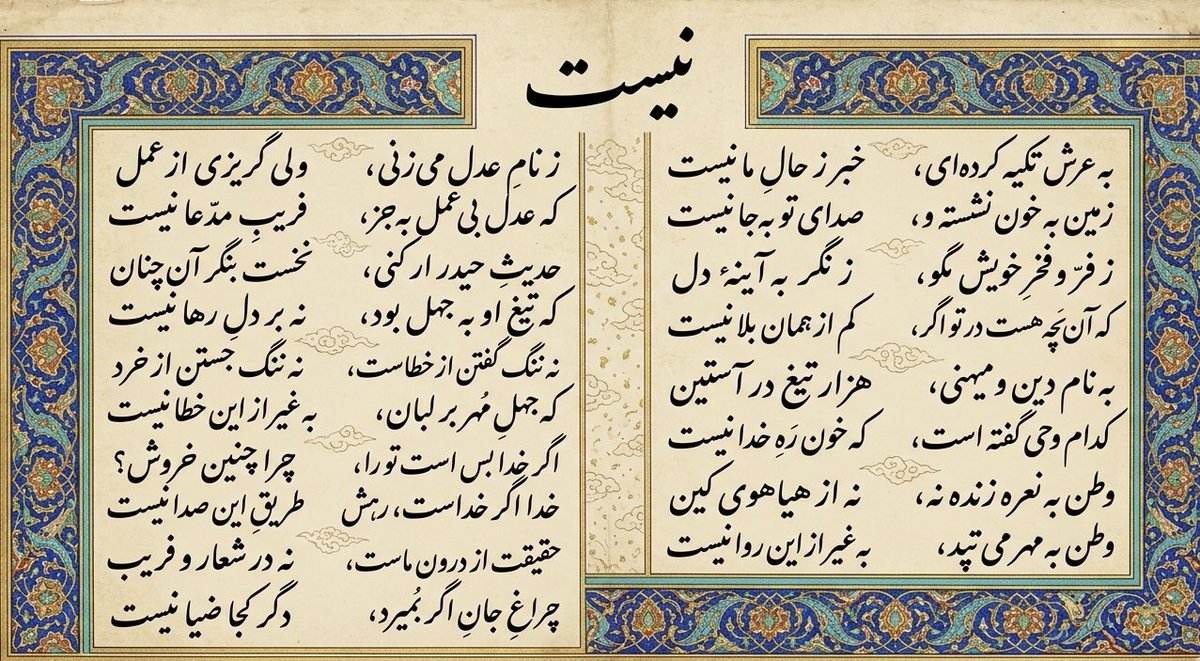 نیست
به عرش تکیه کرده‌ای، خبر ز حالِ ما نیست
زمین به خون نشسته و، صدای تو به جا نیست
ز فرّ و فخرِ خویش مگو، ز نگر به آینهٔ دل
که آن بَچه هست در تو اگر، کم از همان بلا نیست
به نام دین و میهنی، هزار تیغ در آستین
کدام وحی گفته است، که خون رَهِ خدا نیست
وطن به نعره زنده نه، نه از هیاهوی کین
وطن به مهر می تپد، به غیر از این روا نیست
ز نامِ عدل می‌زنی، ولی گریزی از عمل
که عدل بی‌عمل به جز، فریبِ مدّعا نیست
حدیثِ حیدر ار کنی، نخست بنگر آن چنان
که تیغ او به جهل بود، نه بر دلِ رها نیست
نه ننگ گفتن از خطاست، نه ننگ جستن از خرد
که جهلِ مُهر بر لبان، به غیر از این خطا نیست
اگر خدا بس است تو را، چرا چنین خروش؟
خدا اگر خداست، رهش طریقِ این صدا نیست
حقیقت از درون ماست، نه در شعار و فریب
چراغِ جانِ اگر بُمیرد، دگر کجا ضیا نیست